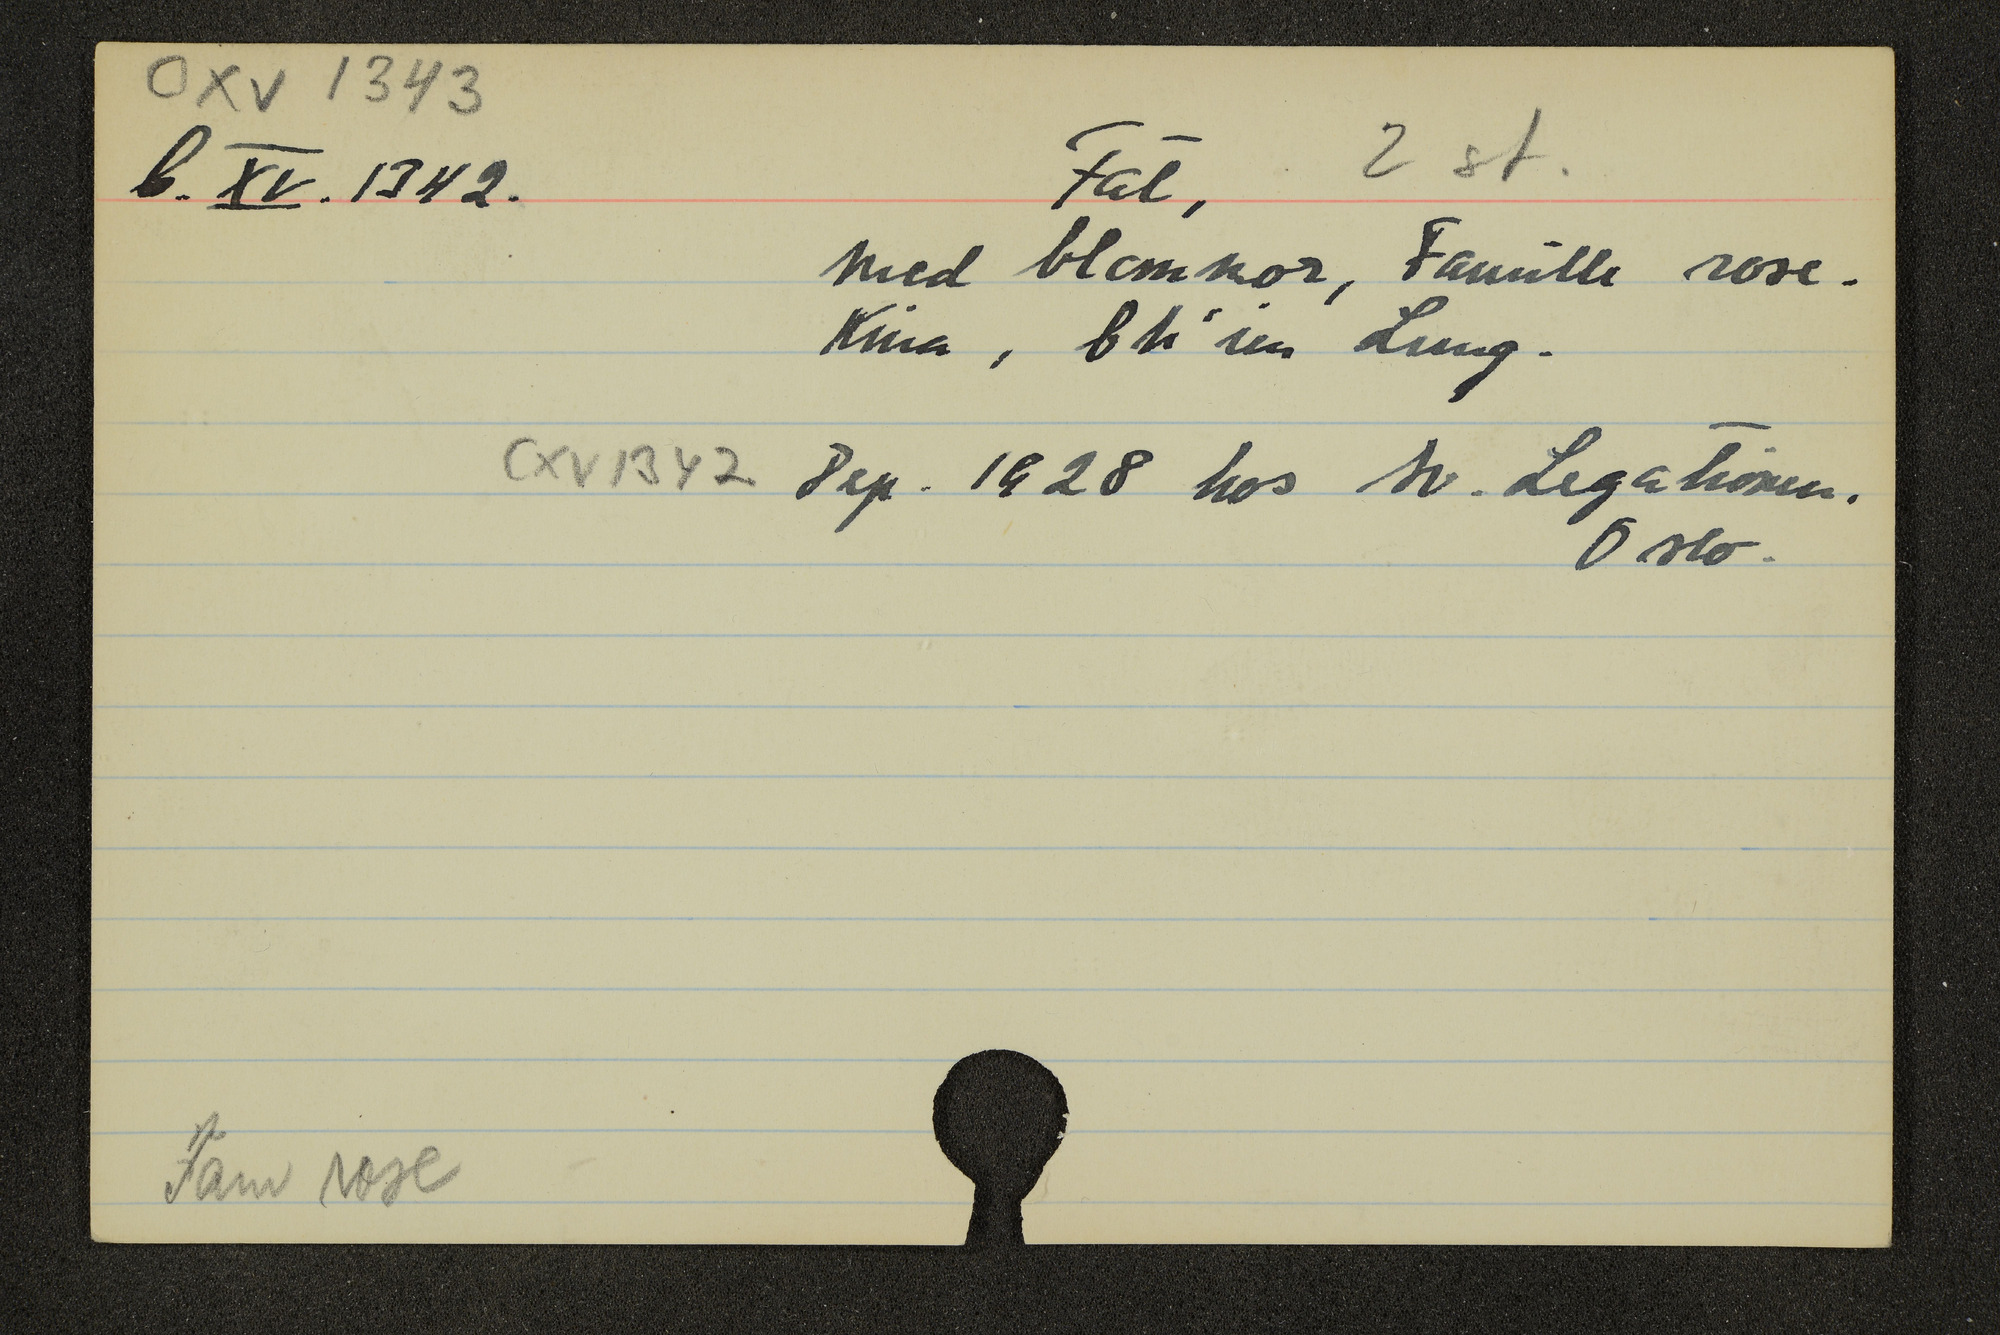 CXV 1343
C. XV. 1342.
Fat, 2 st.
med blommor, Famille rose.
Kina, Ch'ien Lung.
CXV1342 Dep. 1928 hos Sv. Legationen.
Oslo.
Fam rose